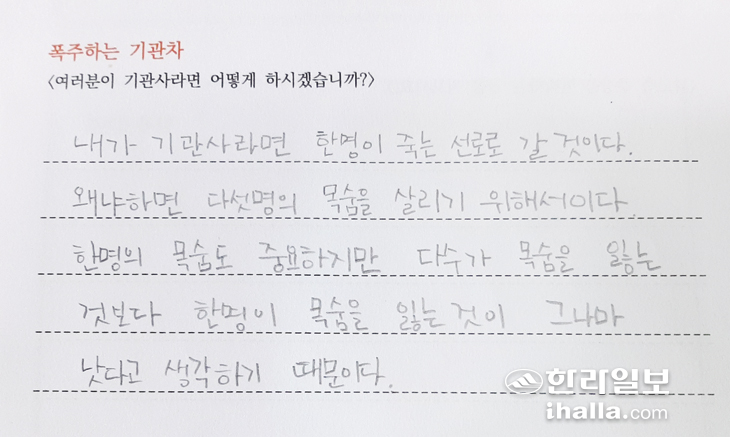 폭주하는 기관차
<여러분이 기관사라면 어떻게 하시겠습니까?>
내가 기관사라면 한명이 죽는 선로로 갈 것이다.
왜냐하면 다섯명의 목숨을 살리기 위해서이다.
한명의 목숨도 중요하지만 다수가 목숨을 잃는
것보다 한명이 목숨을 잃는 것이 그나마
낫다고 생각하기 때문이다.
한라일보
ihalla.com